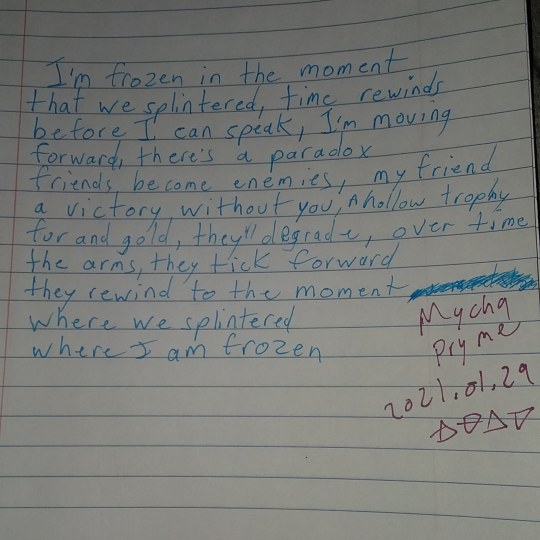 I'm frozen in the moment
that we splintered, time rewinds
before I can speak, I'm moving
forward, there's a paradox
friends, become enemies, my friend
a victory, without you, A hollow trophy
fur and gold, they'll degrade, over time
the arms, they tick forward
they rewind to the moment
where we splintered
where I am frozen
Mycha
Pryme
2021.01.29